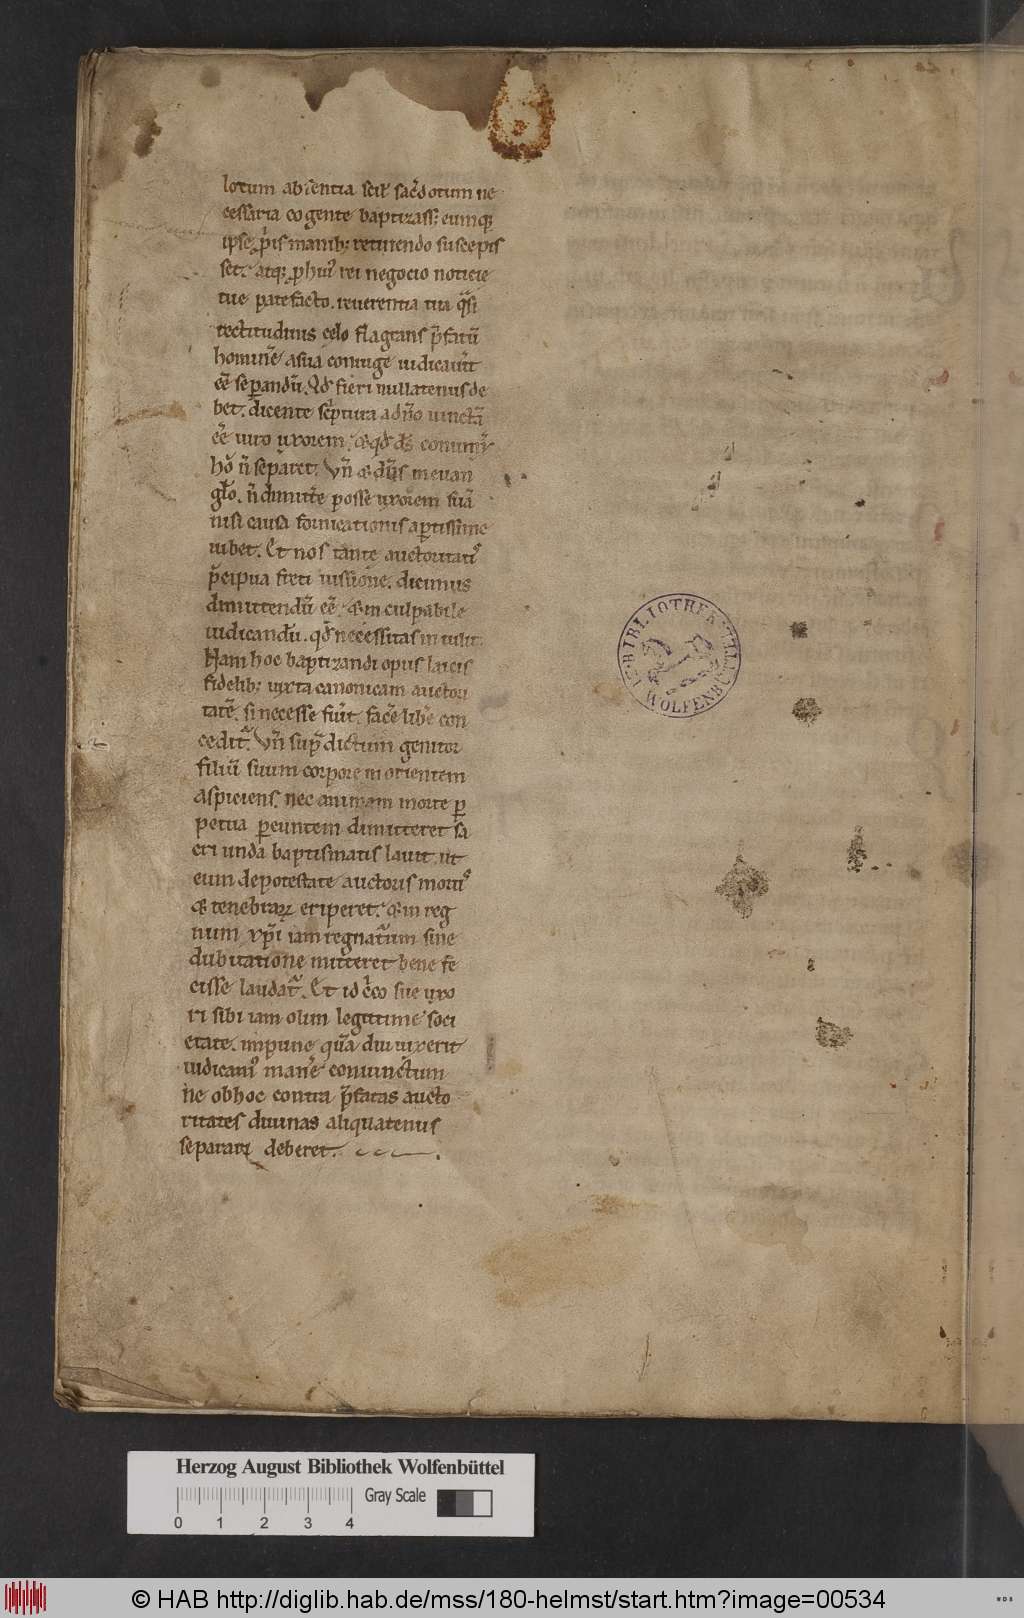 lotum absentia scił sac̄dotum ne
cessaria cogente baptizass; eumq;
ipse p̄pis manib; retinendo suscepis
set. atq; phui' rei negocio noticie
tue patefacto. reuerentia tua q̄si
rectitudinis celo flagrans p̄fatū
hominē a sua coniuge iudicauit
eē separandū. Qd̄ fieri nullatenus de
bet. dicente sc̄ptura a dn̄o iunctā
eē uiro uxorem. & qd̄ ds̄ coniunx̄
ho n̄ separet. Vn̄ & dn̄s in euan
glo. n̄ dimitte posse uxorem suā
nisi causa fornicationis aptissime
iubet. Et nos tante auctoritatis
p̄cipua freti iussione. dicimus
dimittendū eē. & inculpabile
iudicandū. qd̄ necessitas intulit.
Nam hoc baptizandi opus laicis
fidelib; iuxta canonicam auctori
tatē. si necesse fuit. facē libē con
cedit'. Vn̄ sup̄dictum genitor
filiū suum corpore morientem
aspiciens. nec animam morte p
petua pereuntem dimitteret sa
cri unda baptismatis lauit. ut
eum de potestate auctoris mortis
& tenebrarꝝ eriperet. & in reg
num xp̄i iam regnatum sine
dubitatione mitteret bene fe
cisse laudat'. Et idc̄co sue uxo
ri sibi iam olim legitime soci
etate. impune quā diu uixerit
iudicam' manē coniunctum
ne ob hoc contra p̄fatas aucto
ritates diuinas aliquatenus
separari deberet.
BIBLIOTHEK
WOLFENBÜTTEL
Herzog August Bibliothek Wolfenbüttel
Gray Scale
0 1 2 3 4
© HAB http://diglib.hab.de/mss/180-helmst/start.htm?image=00534